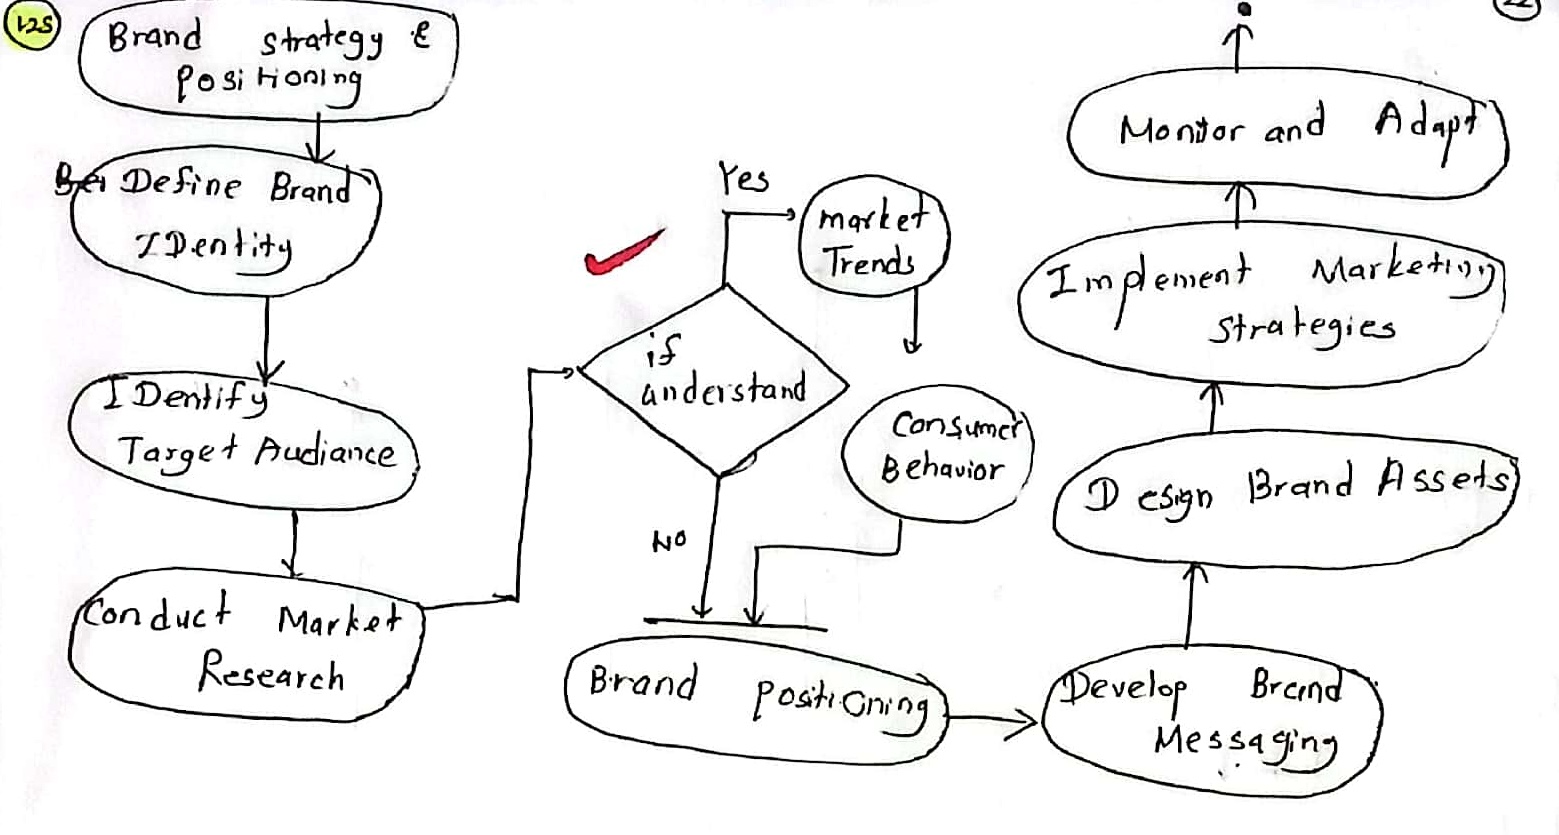 125
22
Brand strategy &
Positioning
Define Brand
IDentity
IDentify
Target Audiance
Conduct Market
Research
if
understand
Yes
market
Trends
Consumer
Behavior
No
Brand Positioning
Develop Brand
Messaging
Design Brand Assets
Implement Marketing
Strategies
Monitor and Adapt